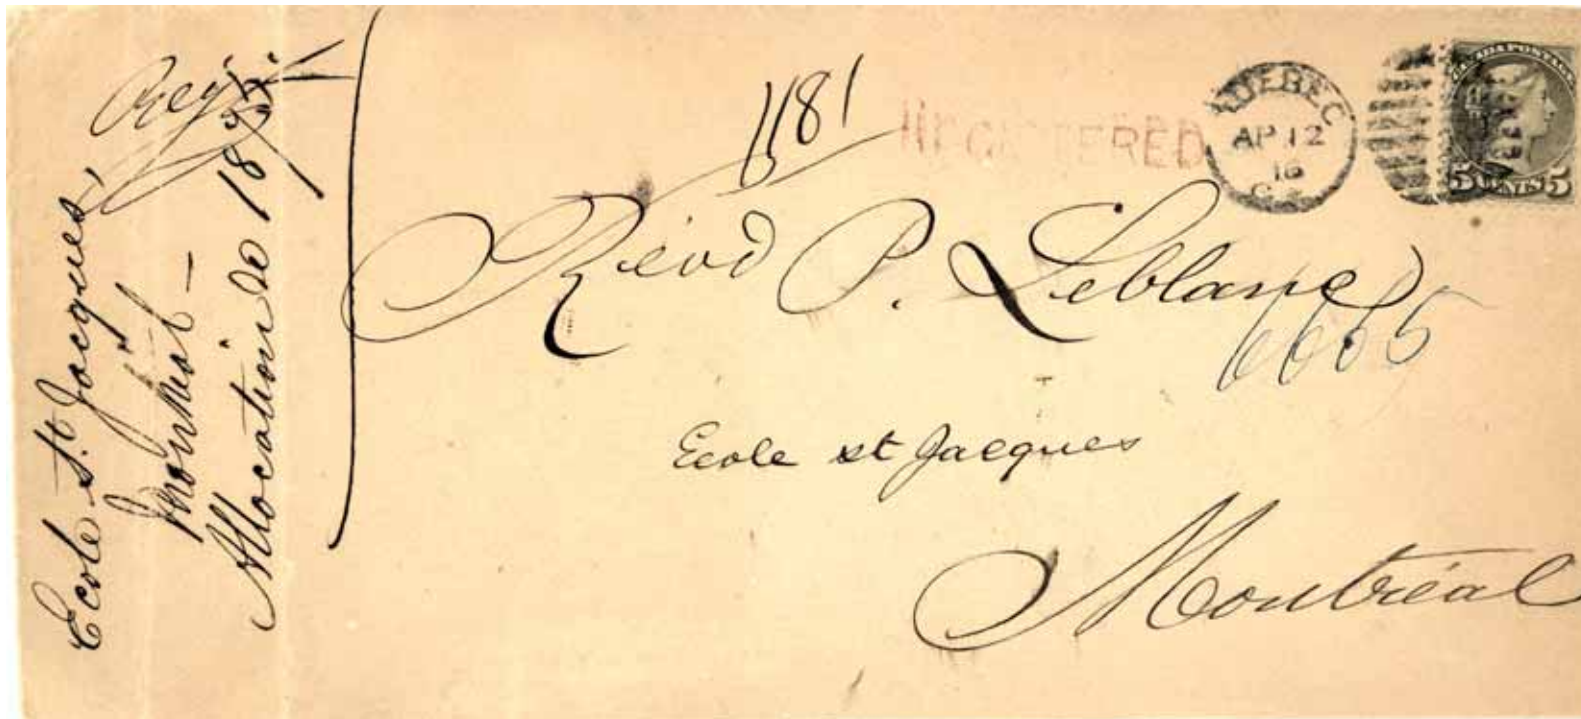 Ecole St Jacques,
Montréal —
Allocation de 18
1181
REGISTERED
QUEBEC
AP 12
18
CANADA POSTAGE
5 CENTS 5
Révd P. Leblanc
6665
Ecole st Jacques
Montréal